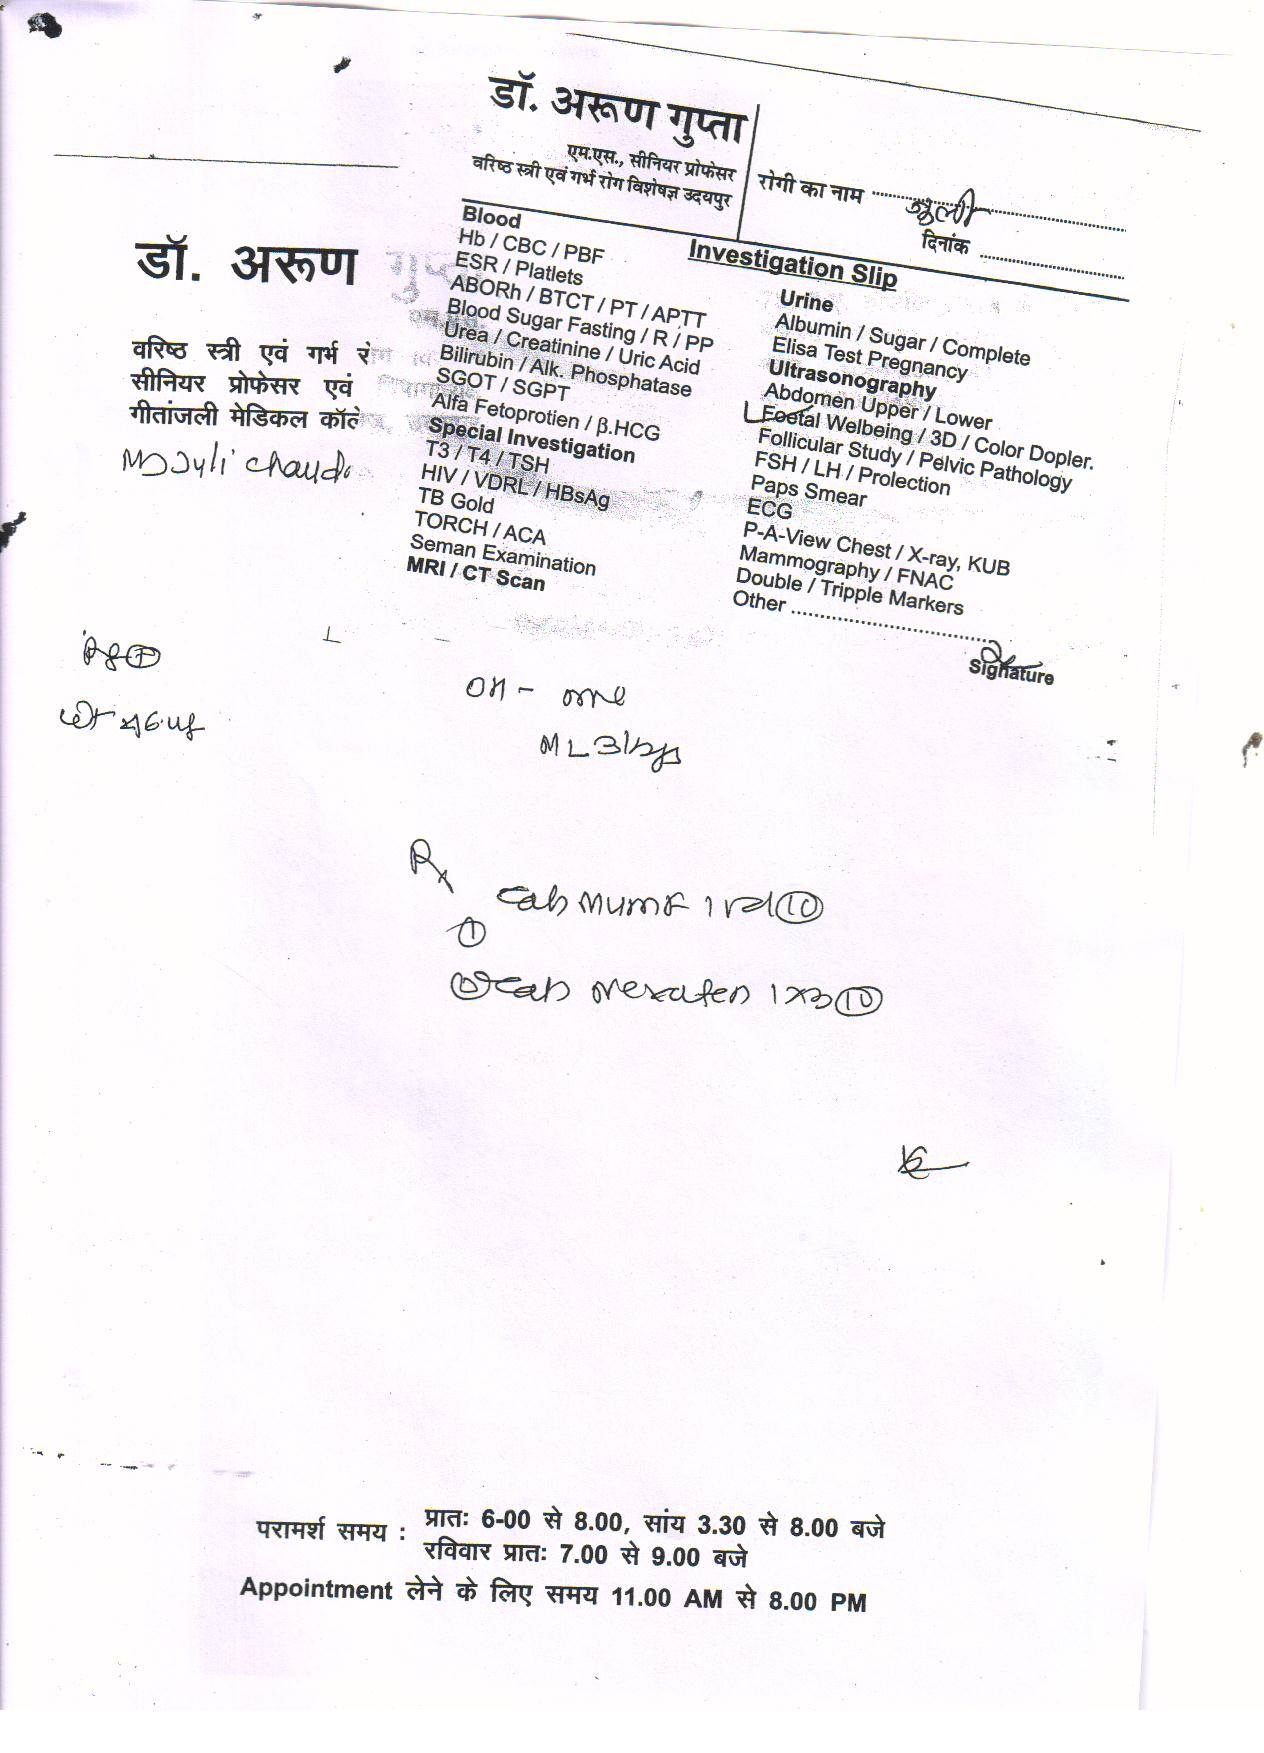 डॉ. अरूण गुप्ता
एम.एस., सीनियर प्रोफेसर
वरिष्ठ स्त्री एवं गर्भ रोग विशेषज्ञ उदयपुर
रोगी का नाम
दिनांक
Investigation Slip
Blood
Hb / CBC / PBF
ESR / Platlets
ABORh / BTCT / PT / APTT
Blood Sugar Fasting / R / PP
Urea / Creatinine / Uric Acid
Bilirubin / Alk. Phosphatase
SGOT / SGPT
Alfa Fetoprotien / β.HCG
Special Investigation
T3 / T4 / TSH
HIV / VDRL / HBsAg
TB Gold
TORCH / ACA
Seman Examination
MRI / CT Scan
Urine
Albumin / Sugar / Complete
Elisa Test Pregnancy
Ultrasonography
Abdomen Upper / Lower
Foetal Welbeing / 3D / Color Dopler.
Follicular Study / Pelvic Pathology
FSH / LH / Prolection
Paps Smear
ECG
P-A-View Chest / X-ray, KUB
Mammography / FNAC
Double / Tripple Markers
Other
Signature
डॉ. अरूण गुप्ता
वरिष्ठ स्त्री एवं गर्भ रोग
सीनियर प्रोफेसर एवं
गीतांजली मेडिकल कॉले
परामर्श समय : प्रातः 6-00 से 8.00, सांय 3.30 से 8.00 बजे
रविवार प्रातः 7.00 से 9.00 बजे
Appointment लेने के लिए समय 11.00 AM से 8.00 PM